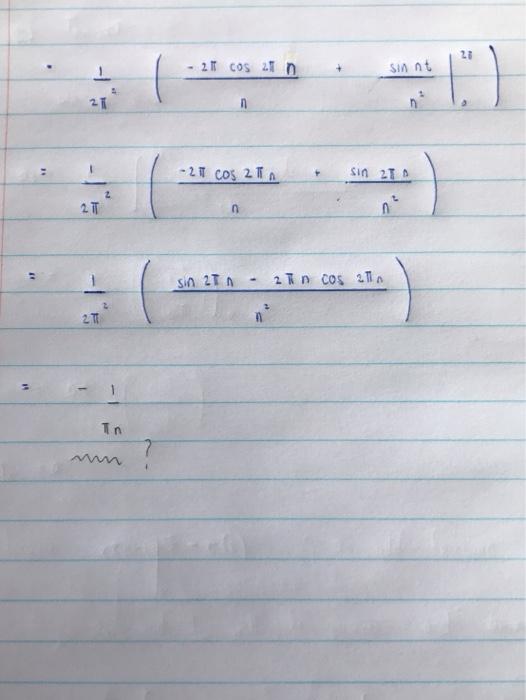 = 1/2π² ( -2π cos 2π n / n + sin nt / n² |₀^2π )
= 1/2π² ( -2π cos 2π n / n + sin 2π n / n² )
= 1/2π² ( sin 2π n - 2π n cos 2π n / n² )
= - 1/πn
?